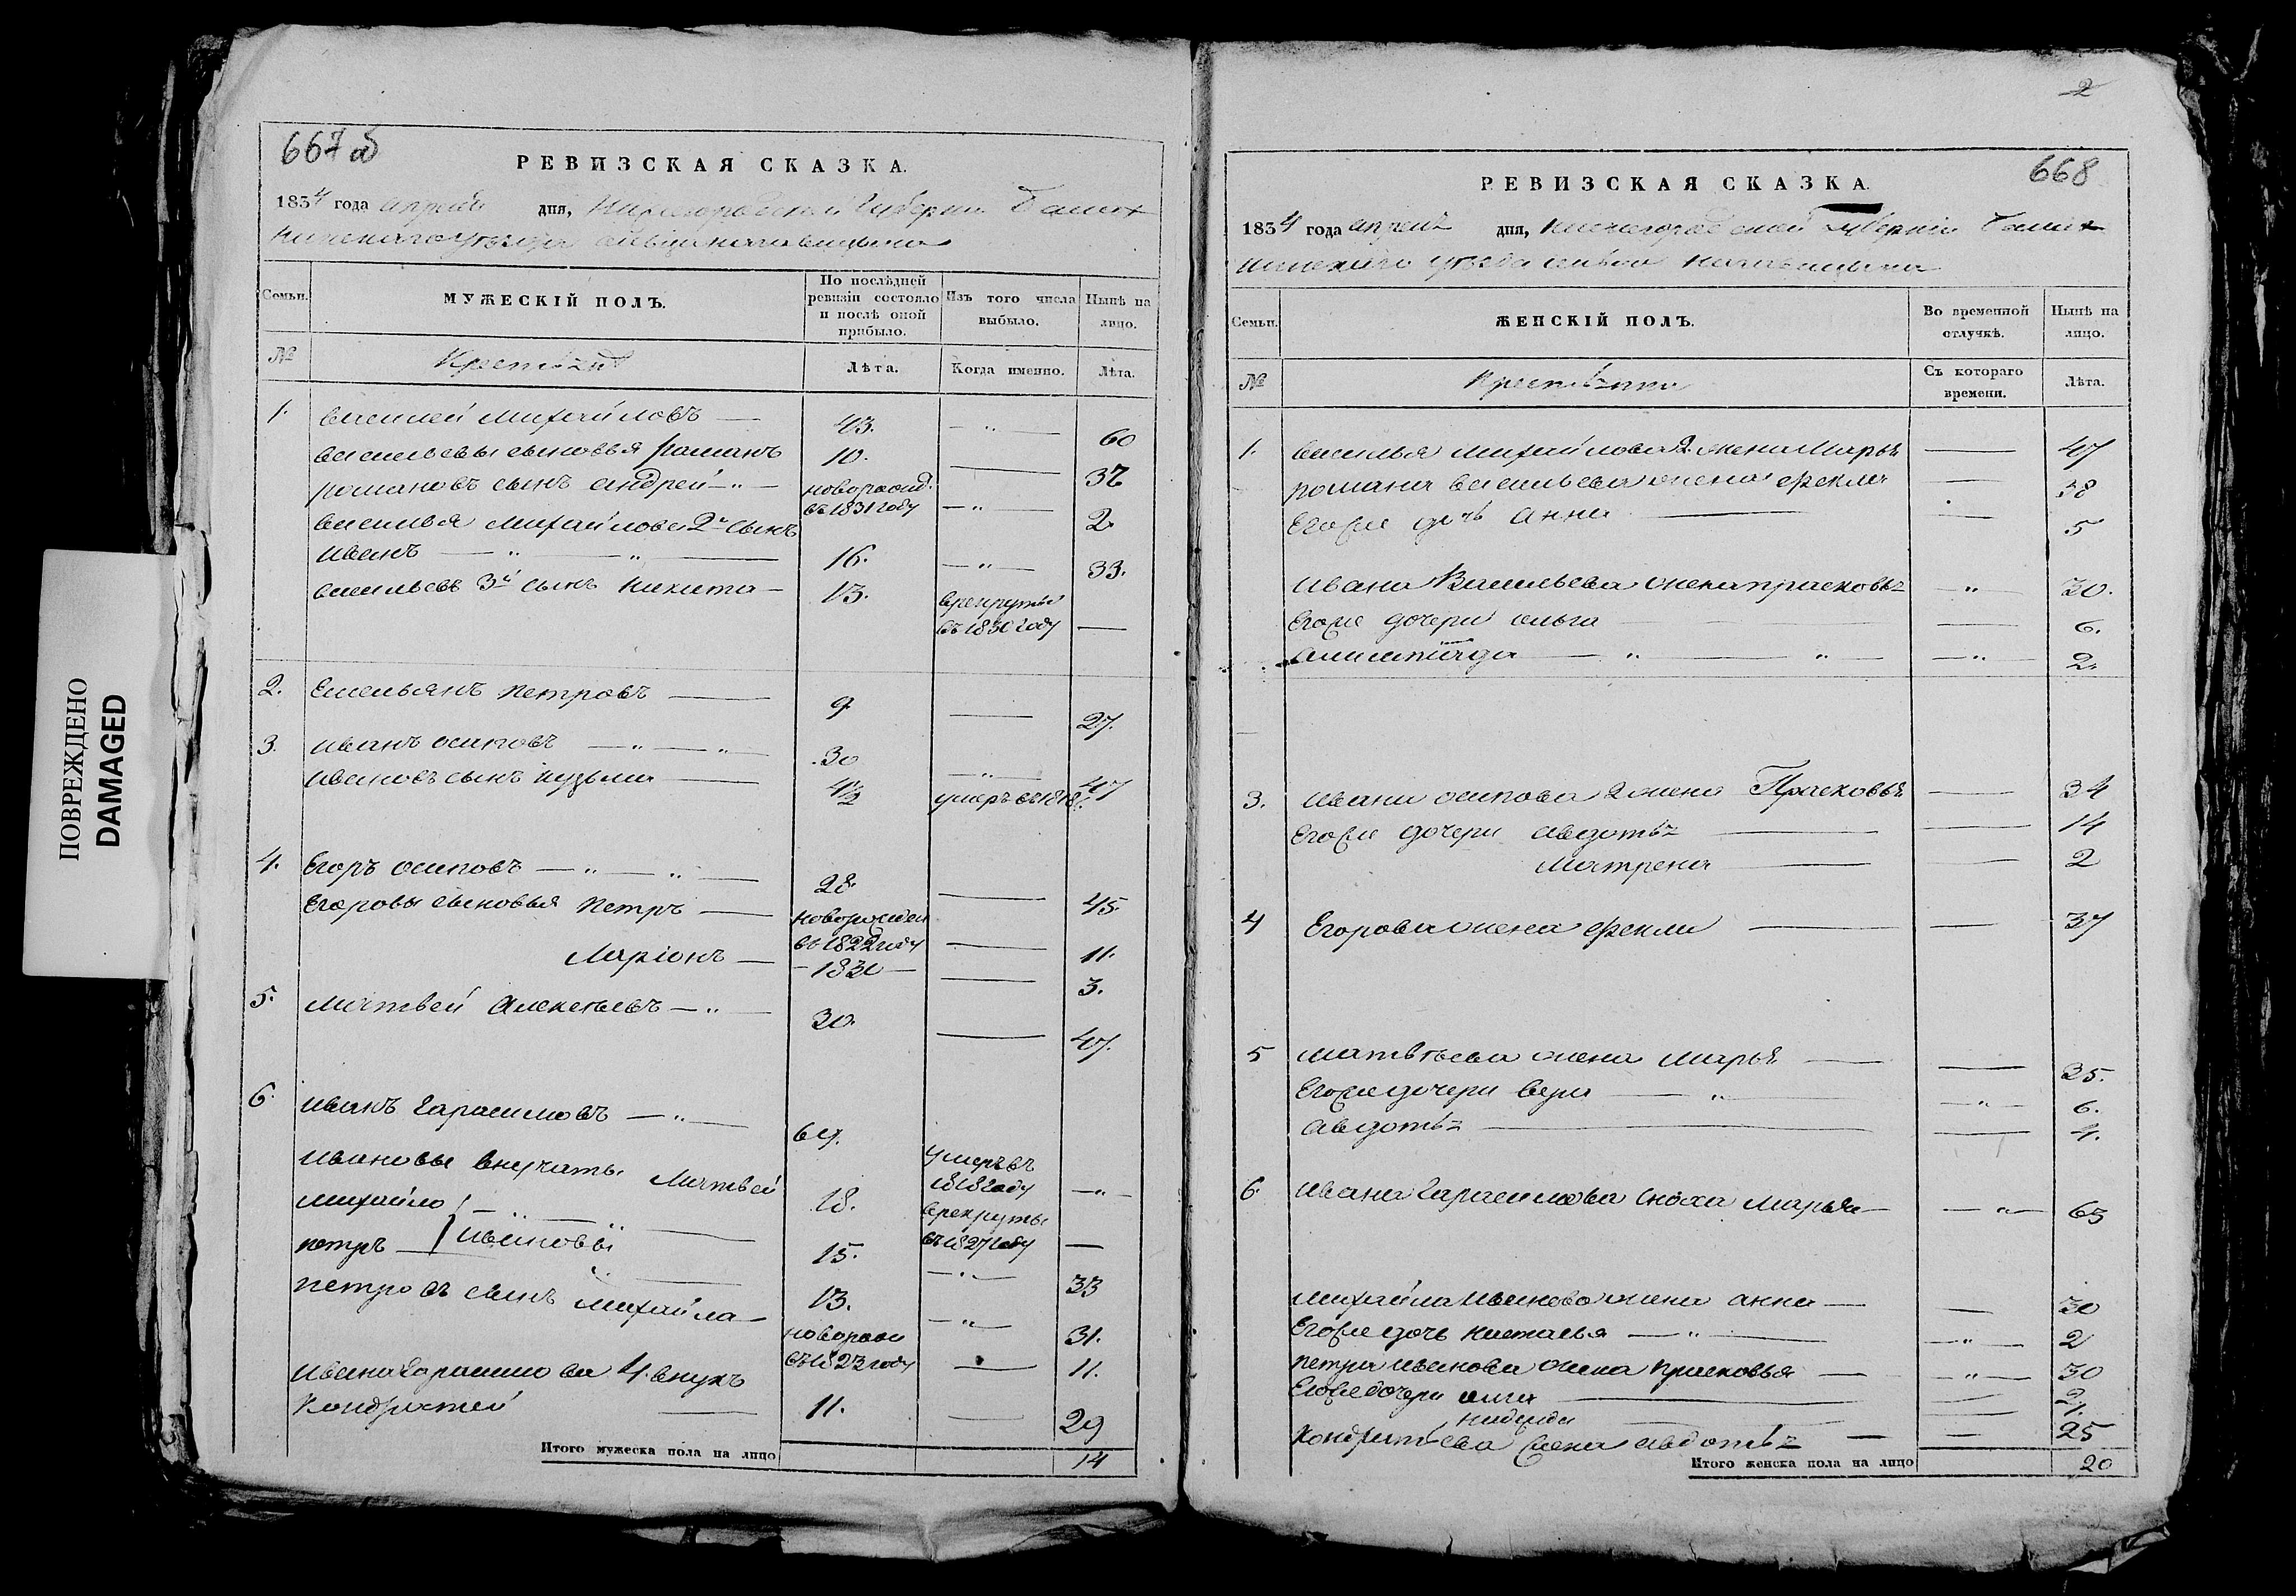 ПОВРЕЖДЕНО
DAMAGED
667 об
РЕВИЗСКАЯ СКАЗКА.
1834 года апреля дня, Нижегородской Губернии
уезда
Семьи. МУЖЕСКІЙ ПОЛЪ. По послѣдней ревизіи состояло и послѣ оной прибыло. Изъ того числа выбыло. Нынѣ на лицо.
№ Лѣта. Когда именно. Лѣта.
1. василей михайловъ — 43. — „ — 60
васильевы сыновья романъ 10. — 37
романовъ сынъ андрей — „ — новорожд. въ 1831 году — „ — 2
василья михайлова 2й сынъ
иванъ — „ — „ — 16. — „ — 33.
васильевъ 3й сынъ никита — 13. в рекруты въ 1830 году —
2. Емельянъ петровъ — 9 — 27.
3. иванъ осиповъ — „ — „ 30 — „ — 47
ивановъ сынъ кузьма — 4½ умеръ въ 1818
4. Егоръ осиповъ — „ — „ — 28. — 45.
Егоровы сыновья петръ — новорожден въ 1822 году — 11.
Ларіонъ — — 1830 — — 3.
5. матвей алексеевъ — „ — 30. — 47.
6. иванъ гарасимовъ — „ — 64. умеръ въ 1818 году — „ —
ивановы внучаты матвей 18. в рекруты въ 1827 году —
михайло } — 15. — „ — 33
петръ — } ивановы 13. — „ — 31.
петровъ сынъ михайла — новорож въ 1823 году — 11.
ивана гарасимова 4. внукъ
кондратей — 11. — 29
Итого мужеска пола на лицо 14
2
668
РЕВИЗСКАЯ СКАЗКА.
1834 года апреля дня, нижегородской губерніи
уезда
Семьи. ЖЕНСКІЙ ПОЛЪ. Во временной отлучкѣ. Нынѣ на лицо.
№ Съ котораго времени. Лѣта.
1. василья михайлова 2. жена марья — 47
романа васильева жена фекла — 38
Его же дочь анна — — 5
ивана Васильева жена прасковья — „ — 30.
Его же дочери — — 6.
— „ — „ — — „ — 2.
3. ивана осипова 2 жена Прасковья — 34
Его же дочери авдотья — — 14
матрена — — 2
4 Егорова жена фекла — — 37
5 матвѣева жена марья — — 35.
Его же дочери вера — „ — — „ — 6.
авдотья — — 4.
6. ивана гарасимова сноха марья — — „ — 65
михайла иванова жена анна — — 30
Его же дочь наталья — „ — — „ — 2
петра иванова жена прасковья — — „ — 30
Его же дочери — — 2
— — 1.
кондратьева жена авдотья — — 25
Итого женска пола на лицо 20